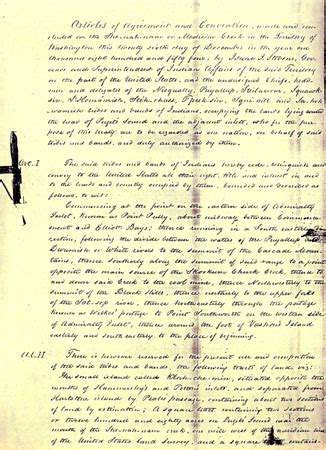 Articles of Agreement and Convention, made and con-
cluded on the She-nah-nam or Medicine Creek in the Territory of
Washington this twenty sixth day of December in the year one
thousand eight hundred and fifty four, by Isaac I. Stevens, Gov-
ernor and Superintendent of Indian Affairs of the said Territory
on the part of the United States, and the undersigned Chiefs, head-
men and delegates of the Nisqually, Puyallup, Steilacoom, Squawk-
sin, S'Homamish, Stehchass, T'peek-sin, Squi-aitl and Sa-heh-
wamish tribes and bands of Indians, occupying the lands lying round
the head of Puget's Sound and the adjacent inlets, who for the pur-
pose of this treaty are to be regarded as one nation, on behalf of said
tribes and bands, and duly authorized by them.
Art. I
The said tribes and bands of Indians hereby cede, relinquish and
convey to the United States all their right, title and interest in and
to the lands and country occupied by them, bounded and described as
follows, to wit;
Commencing at the point on the eastern side of Admiralty
Inlet, Known as Point Pully, about midway between Commence-
ment and Elliott Bays; thence running in a South easterly di-
rection, following the divide between the waters of the Puyallup and
Dwamish or White rivers to the Summit of the Cascade Moun-
tains, thence Southerly along the summit of said range to a point
opposite the main source of the Skookum Chuck Creek, thence to
and down said Creek to the coal mine, thence Northwesterly to the
summit of the Black Hills, thence northerly to the upper forks
of the Sat-sop river, thence Northeasterly through the portage
Known as Wilkes' portage to Point Southworth on the western side
of Admiralty Inlet, thence around the foot of Vashon's Island
easterly and south easterly to the place of beginning.
Art. II
There is however reserved for the present use and occupation
of the said tribes and bands, the following tracts of land, viz:
The small island called Klah-che-min, situated opposite the
mouths of Hammersley's and Totten's inlets, and separated from
Hartstene island by Peale's passage, containing about two sections
of land by estimation; A square tract containing two sections
or twelve hundred and eighty acres on Puget's Sound near the
mouth of the She-nah-nam creek, one mile west of the meridian line
of the United States Land Survey, and a square tract contain-